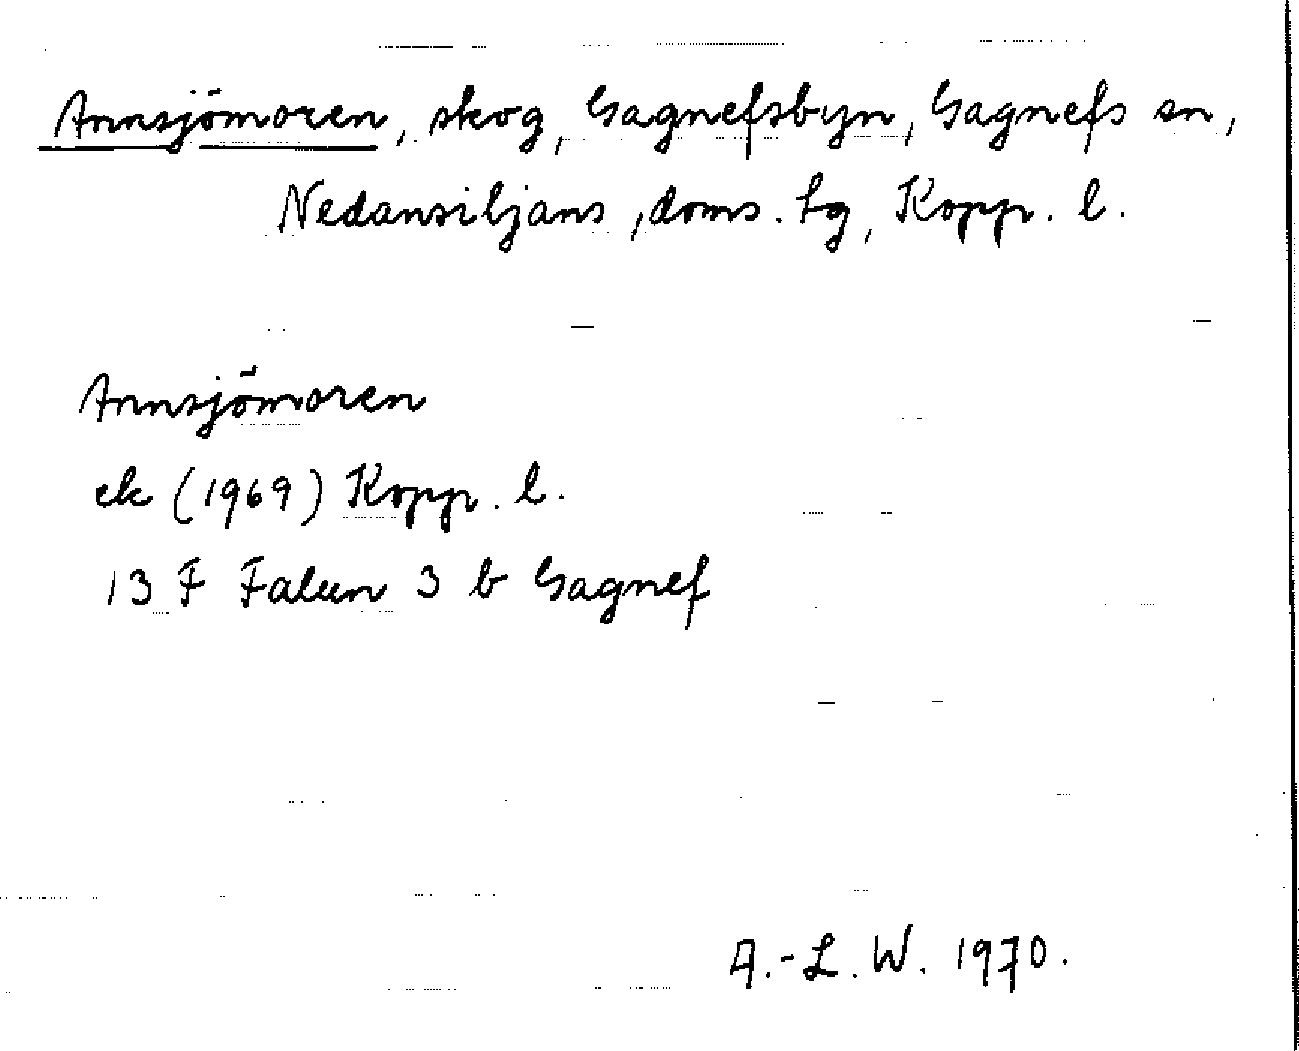 Annsjömoren, skog, Gagnefsbyn, Gagnefs sn,
Nedansiljans, doms. tg, Kopp. l.
Annsjömoren
ek (1969) Kopp. l.
13 F Falun 3 b Gagnef
A.-L. W. 1970.